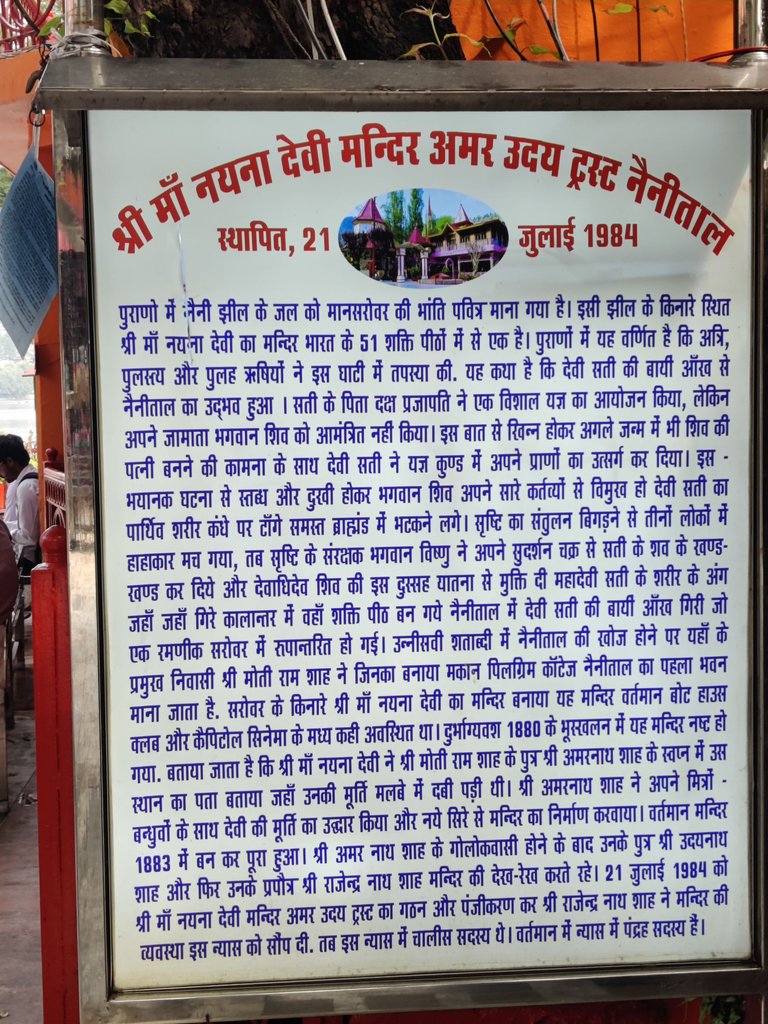 श्री माँ नयना देवी मन्दिर अमर उदय ट्रस्ट नैनीताल
स्थापित, 21 जुलाई 1984
पुराणो में नैनी झील के जल को मानसरोवर की भांति पवित्र माना गया है। इसी झील के किनारे स्थित
श्री माँ नयना देवी का मन्दिर भारत के 51 शक्ति पीठों में से एक है। पुराणों में यह वर्णित है कि अत्रि,
पुलस्त्य और पुलह ऋषियों ने इस घाटी में तपस्या की. यह कथा है कि देवी सती की बायीं आँख से
नैनीताल का उद्भव हुआ । सती के पिता दक्ष प्रजापति ने एक विशाल यज्ञ का आयोजन किया, लेकिन
अपने जामाता भगवान शिव को आमंत्रित नहीं किया। इस बात से खिन्न होकर अगले जन्म में भी शिव की
पत्नी बनने की कामना के साथ देवी सती ने यज्ञ कुण्ड में अपने प्राणों का उत्सर्ग कर दिया। इस -
भयानक घटना से स्तब्ध और दुखी होकर भगवान शिव अपने सारे कर्तव्यों से विमुख हो देवी सती का
पार्थिव शरीर कंधे पर टाँगे समस्त ब्राह्मंड में भटकने लगे। सृष्टि का संतुलन बिगड़ने से तीनों लोकों में
हाहाकार मच गया, तब सृष्टि के संरक्षक भगवान विष्णु ने अपने सुदर्शन चक्र से सती के शव के खण्ड-
खण्ड कर दिये और देवाधिदेव शिव की इस दुस्सह यातना से मुक्ति दी महादेवी सती के शरीर के अंग
जहाँ जहाँ गिरे कालान्तर में वहाँ शक्ति पीठ बन गये नैनीताल में देवी सती की बायीं आँख गिरी जो
एक रमणीक सरोवर में रुपान्तरित हो गई। उन्नीसवी शताब्दी में नैनीताल की खोज होने पर यहाँ के
प्रमुख निवासी श्री मोती राम शाह ने जिनका बनाया मकान पिलग्रिम कॉटेज नैनीताल का पहला भवन
माना जाता है. सरोवर के किनारे श्री माँ नयना देवी का मन्दिर बनाया यह मन्दिर वर्तमान बोट हाउस
क्लब और कैपिटोल सिनेमा के मध्य कही अवस्थित था। दुर्भाग्यवश 1880 के भूस्खलन में यह मन्दिर नष्ट हो
गया. बताया जाता है कि श्री माँ नयना देवी ने श्री मोती राम शाह के पुत्र श्री अमरनाथ शाह के स्वप्न में उस
स्थान का पता बताया जहाँ उनकी मूर्ति मलबे में दबी पड़ी थी। श्री अमरनाथ शाह ने अपने मित्रों -
बन्धुवों के साथ देवी की मूर्ति का उद्धार किया और नये सिरे से मन्दिर का निर्माण करवाया। वर्तमान मन्दिर
1883 में बन कर पूरा हुआ। श्री अमर नाथ शाह के गोलोकवासी होने के बाद उनके पुत्र श्री उदयनाथ
शाह और फिर उनके प्रपौत्र श्री राजेन्द्र नाथ शाह मन्दिर की देख-रेख करते रहे। 21 जुलाई 1984 को
श्री माँ नयना देवी मन्दिर अमर उदय ट्रस्ट का गठन और पंजीकरण कर श्री राजेन्द्र नाथ शाह ने मन्दिर की
व्यवस्था इस न्यास को सौंप दी. तब इस न्यास में चालीस सदस्य थे। वर्तमान में न्यास में पंद्रह सदस्य हैं।